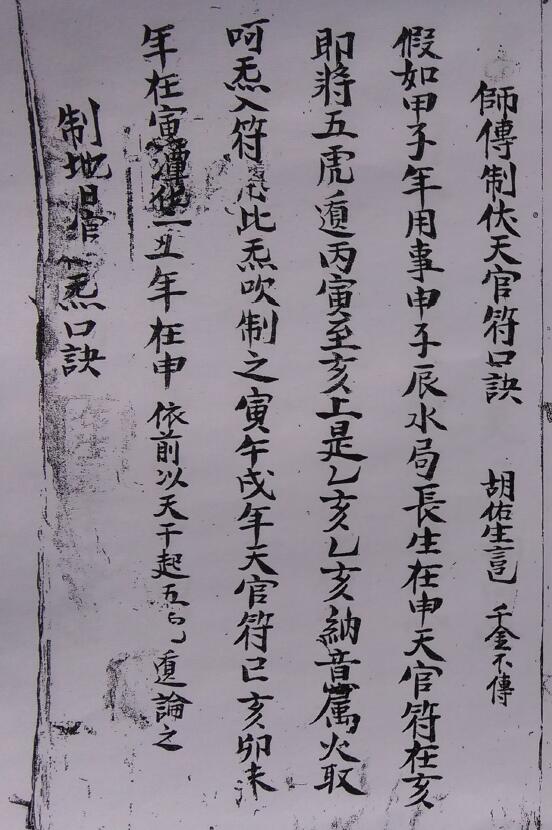 師傳制伏天官符口訣 胡佑生記 千金不傳
假如甲子年用事申子辰水局長生在申天官符在亥
即將五虎遁丙寅至亥上是乙亥乙亥納音属火取
呵炁入符 此炁吹制之寅午戌年天官符巳亥卯未
年在寅 丑年在申 依前以天干起五 遁論之
制地 官 炁口訣